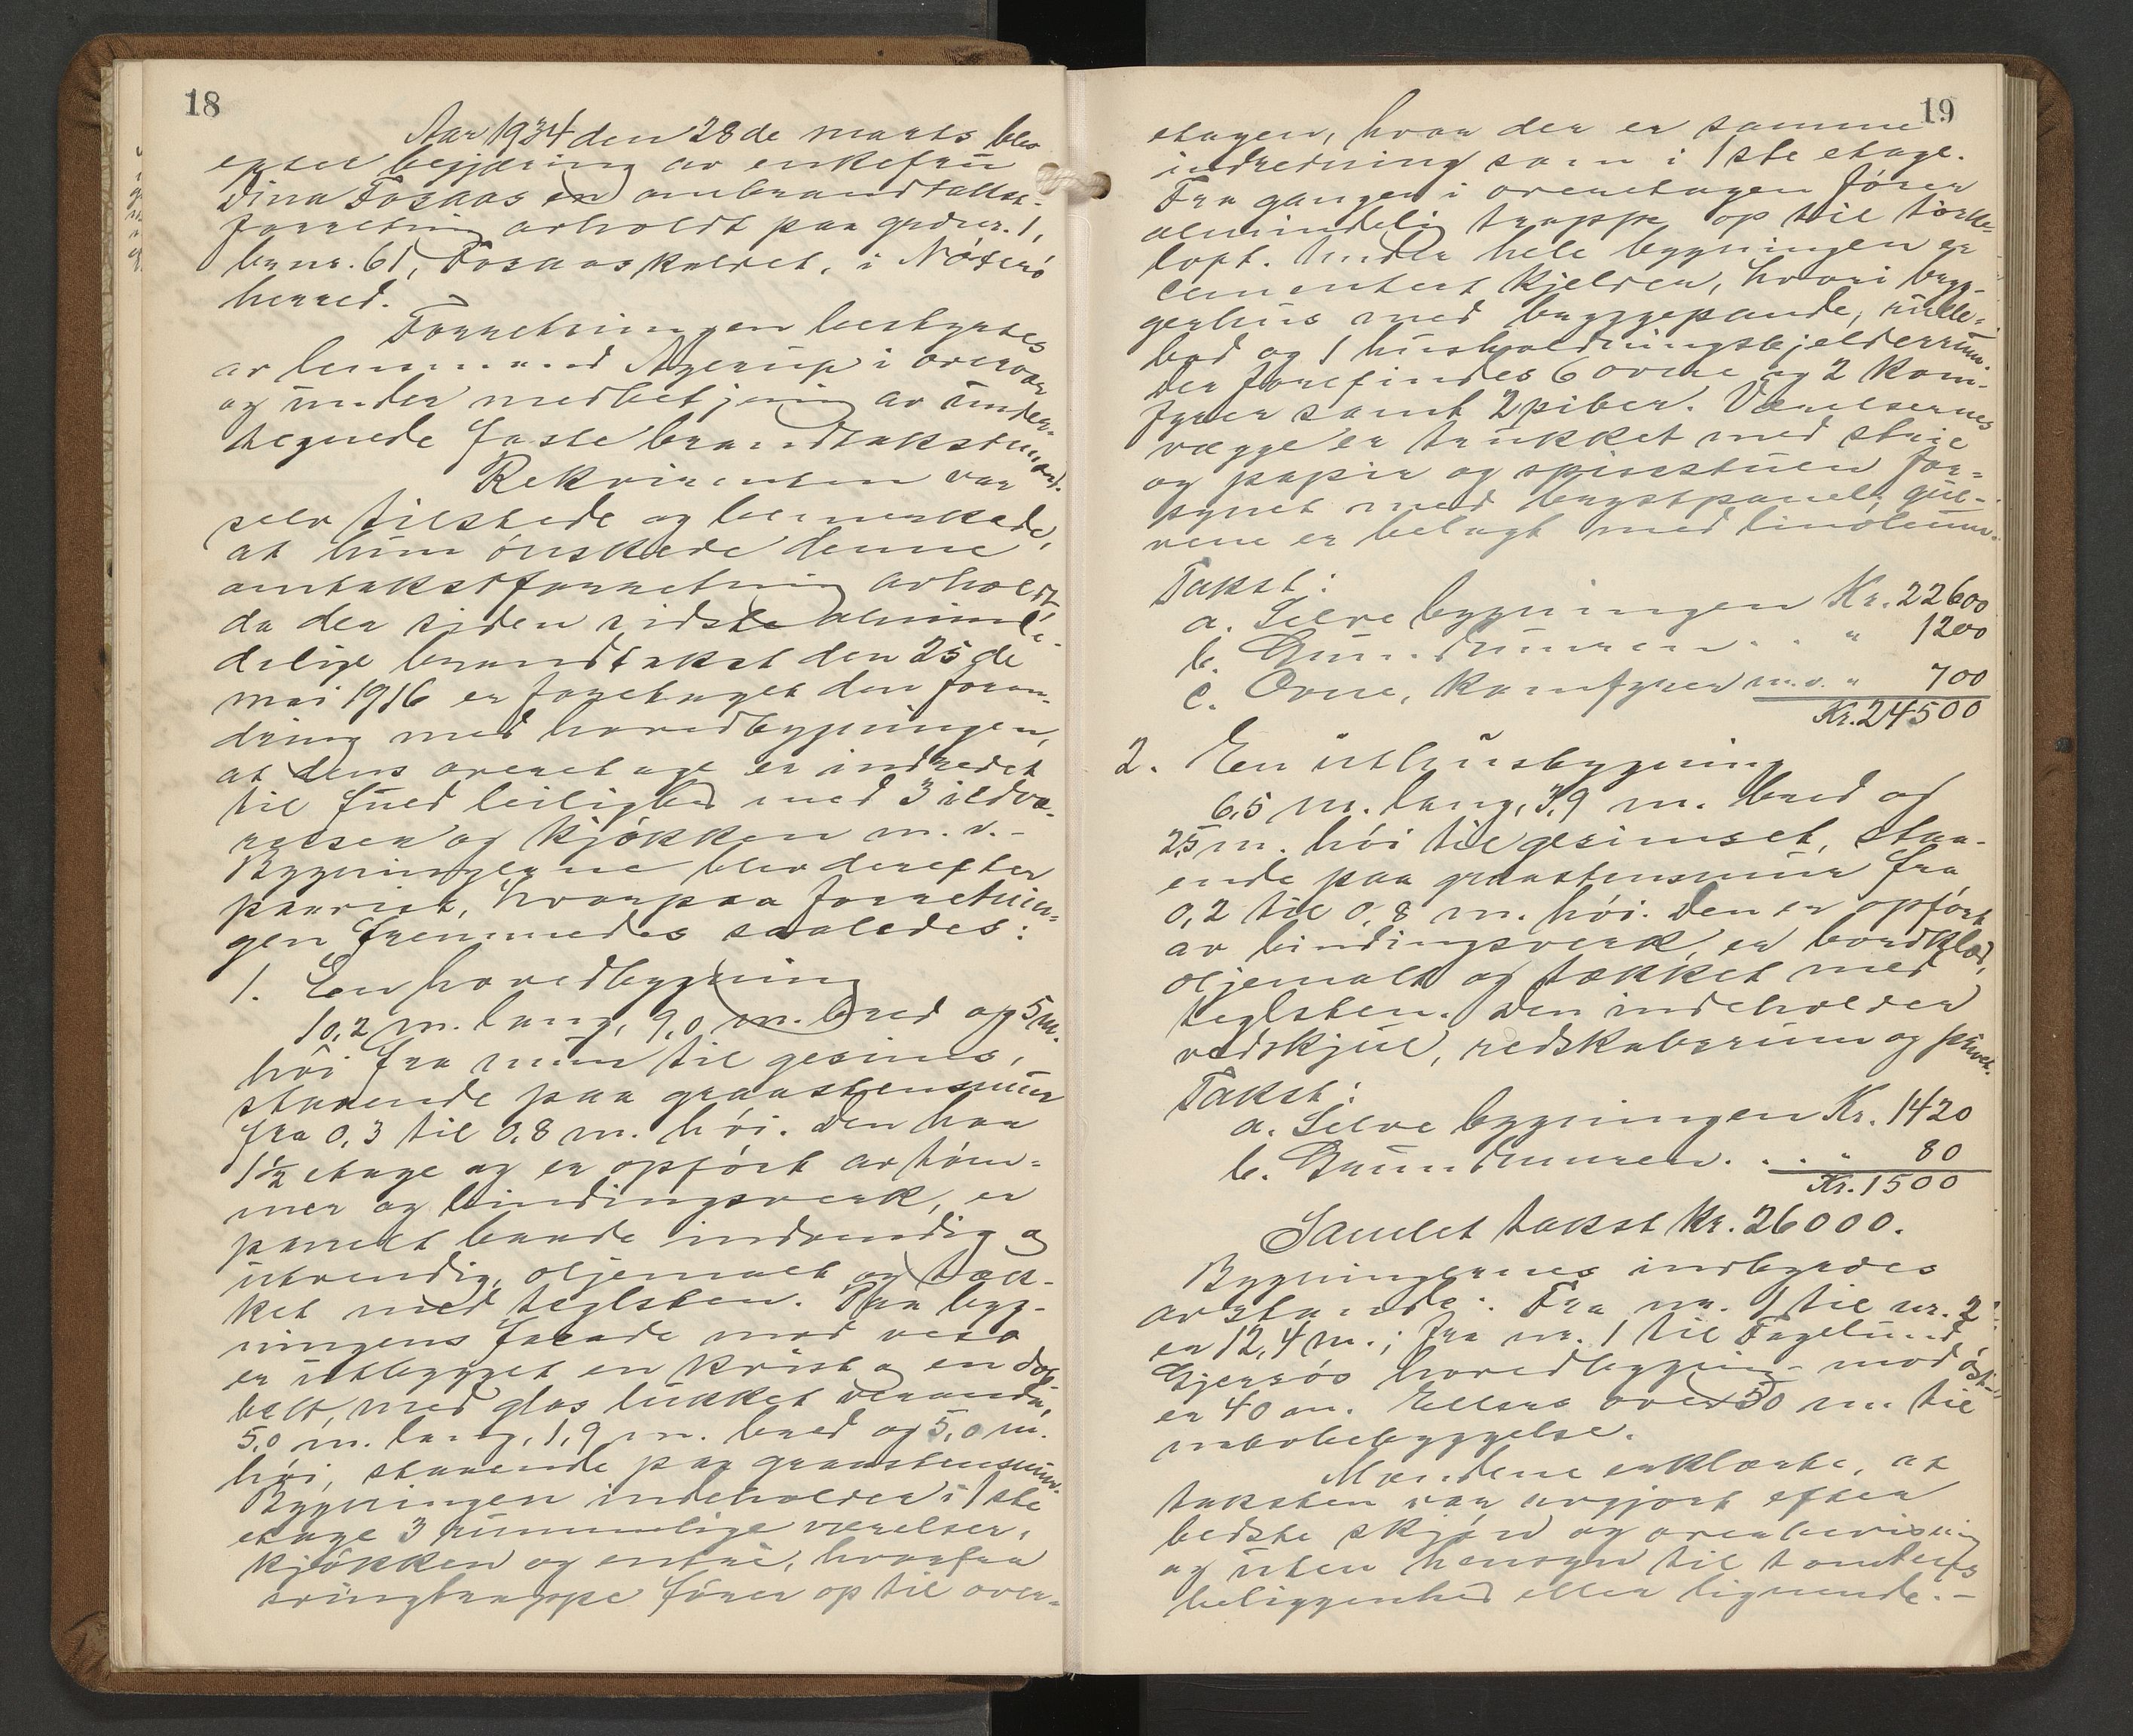 18
Aar 1934 den 28de marts blev
efter begjæring av enkefru
Dina Fosaas en ombrandtakst-
forretning avholdt paa grdnr. 1,
brnr. 61, Fosaaskollet, i Nøterø
herred.
Forretningen bestyrtes
av lensmand Agerup i overvær
og under medbetjening av under-
tegnede faste brandtakstmænd.
Rekvirenten var
selv tilstede og bemerkede,
at hun ønskede denne
omtakstforretning avholdt,
da der siden sidste almin-
delige brandtakst den 25de
mai 1916 er foretaget den foran-
dring med hovedbygningen,
at dens overetage er indredet
til fuld leilighed med 3 ildvæ-
relser og kjøkken m. v. -
Bygningerne blev derefter
paavist, hvorpaa forretnin-
gen fremmedes saaledes:
1. En hovedbygning
10,2 m. lang, 9,0 m. bred og 5 m.
høi fra mur til gesims,
staaende paa graastensmur
fra 0,3 til 0,8 m. høi. Den har
1½ etage og er opført av tøm-
mer og bindingsverk, er
panelt baade indvendig og
utvendig, oljemalt og tæk-
ket med teglsten. Paa byg-
ningens facade mod vest
er utbygget en kvist og en dob-
belt, med glas lukket veranda,
5,0 m. lang, 1,9 m. bred og 5,0 m.
høi, staaende paa graastensmur.
Bygningen indeholder i 1ste
etage 3 rummelige værelser,
kjøkken og entré, hvorfra
svingtrappe fører op til over-
19
etagen, hvor der er samme
indredning som i 1ste etage.
Fra gangen i overetagen fører
almindelig trappe op til tørke-
loft. Under hele bygningen er
cementert kjelder, hvori bryg-
gerhus med bryggepande, rulle-
bod og 1 husholdningskjelderrum.
Der forefindes 6 ovne og 2 kom-
fyrer samt 2 piber. Værelsernes
vægge er trukket med strie
og papir og spisestuen for-
synet med brystpanel; gul-
vene er belagt med linoleum.
Takst:
a. Selve bygningen Kr. 22600
b. Grundmuren . . " 1200
c. Ovne, komfyrer m.v. " 700
Kr. 24500
2. En uthusbygning
6,5 m. lang, 3,9 m. bred og
2,5 m. høi til gesimset, staa-
ende paa graastensmur fra
0,2 til 0,8 m. høi. Den er opført
av bindingsverk, er bordklæd,
oljemalt og tækket med
teglsten. Den indeholder
vedskjul, redskabsrum og privet.
Takst:
a. Selve bygningen Kr. 1420
b. Grundmuren . . . " 80
Kr. 1500
Samlet takst kr. 26000.
Bygningernes indbyrdes
avstande: Fra nr. 1 til nr. 2
er 12,4 m.; fra nr. 1 til Fagelund
Gjersøs hovedbygning mod øst
er 40 m. Ellers over 50 m. til
nabobebyggelse.
Mændene erklærte, at
taksten var avgjort efter
bedste skjøn og overbevisning
og uten hensyn til tomtens
beliggenhed eller lignende. -